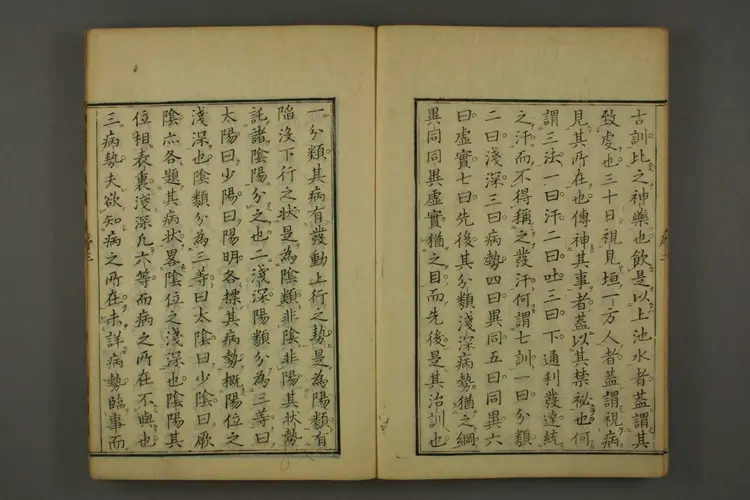 古訓比之神藥也飲是以上池水者蓋謂其
致處也三十日視見垣一方人者蓋謂視病
見其所在也傳神其事者蓋以其禁祕也何
謂三法一曰汗二曰吐三曰下通利發達統
之汗而不得稱之發汗何謂七訓一曰分類
二曰淺深三曰病勢四曰異同五曰同異六
曰虛實七曰先後其分類淺深病勢猶之綱
異同同異虛實猶之目而先後是其治訓也
一分類其病有發動上行之勢是為陽類有
陷沒下行之狀是為陰類非陰非陽其狀勢
託諸陰陽分之也二淺深陽類分為三等曰
太陽曰少陽曰陽明各標其病勢概陽位之
淺深也陰類分為三等曰太陰曰少陰曰厥
陰亦各題其病狀畧陰位之淺深也陰陽其
位相表裏淺深凡六等而病之所在不與也
三病勢夫欲知病之所在未詳病勢臨事而